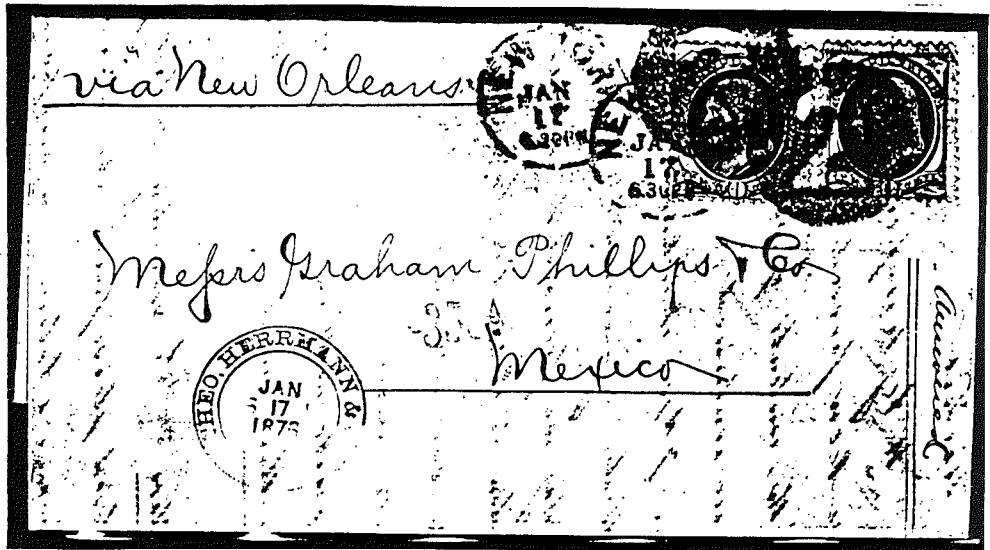 via New Orleans
NEW YORK
JAN
17
6.30PM
NEW
JAN
17
6.30PM
Messrs Graham Phillips & Co
35
Mexico
THEO. HERRMANN &
JAN
17
1873